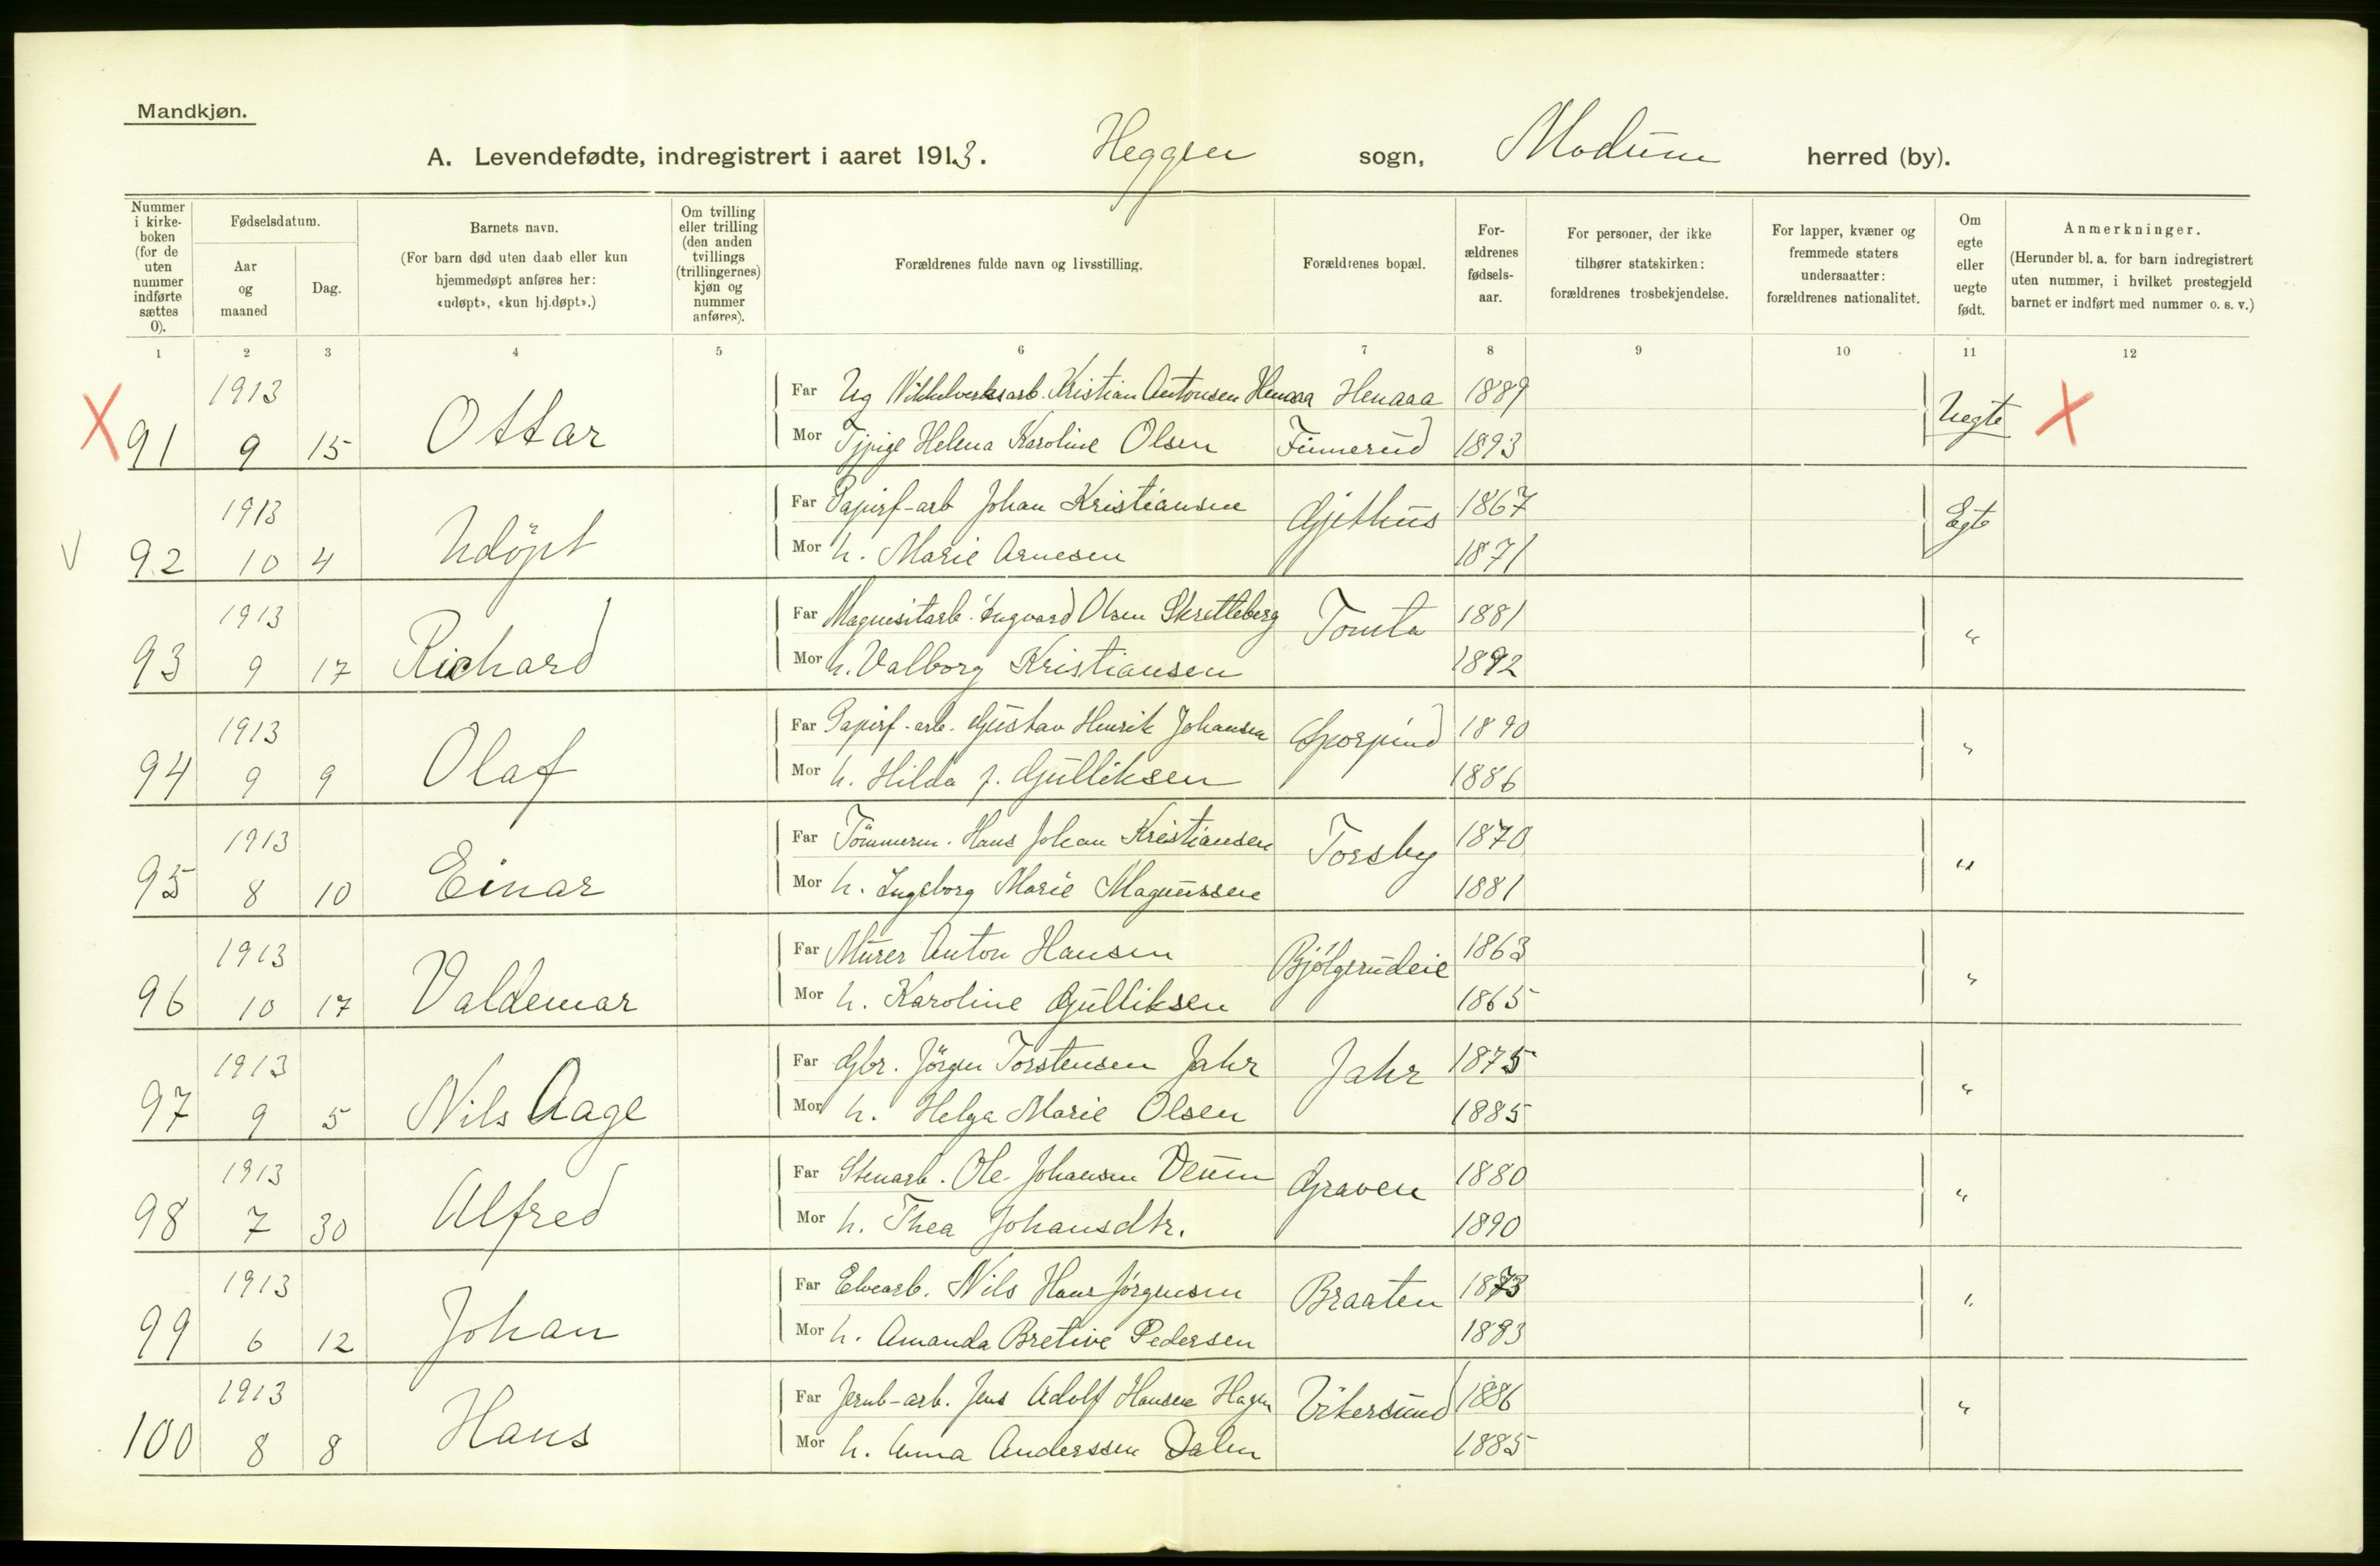 Mandkjøn.
A. Levendefødte, indregistrert i aaret 1913. Heggen sogn, Modum herred (by).
Nummer i kirkeboken (for de uten nummer indførte sættes 0).
Fødselsdatum.
Aar og maaned
Dag.
Barnets navn.
(For barn død uten daab eller kun hjemmedøpt anføres her: «udøpt», «kun hj.døpt».)
Om tvilling eller trilling (den anden tvillings (trillingernes) kjøn og nummer anføres).
Forældrenes fulde navn og livsstilling.
Forældrenes bopæl.
For-ældrenes fødsels-aar.
For personer, der ikke tilhører statskirken: forældrenes trosbekjendelse.
For lapper, kvæner og fremmede staters undersaatter: forældrenes nationalitet.
Om egte eller uegte født.
Anmerkninger.
(Herunder bl. a. for barn indregistrert uten nummer, i hvilket prestegjeld barnet er indført med nummer o. s. v.)
1 2 3 4 5 6 7 8 9 10 11 12
1913 Far Ug Nikkelverksarb. Kristian Antonsen Henaaa Henaaa 1889 Uegte X
X 91 9 15 Ottar Mor Tjpige Helena Karoline Olsen Finnerud 1893
1913 Far Papirf-arb Johan Kristiansen Gjethus 1867 Egte
V 92 10 4 Udöpt Mor h. Marie Arnesen 1871
1913 Far Magnesitarb. Ingvard Olsen Skretteberg Tomta 1881 "
93 9 17 Richard Mor h. Valborg Kristiansen 1892
1913 Far Papirf-arb. Gustav Henrik Johansen 1890 "
94 9 9 Olaf Mor h. Hilda f. Gulliksen 1886
1913 Far Tömmerm. Hans Johan Kristiansen Torsby 1870 "
95 8 10 Einar Mor h. Ingeborg Marie Magnussen 1881
1913 Far Murer Anton Hansen Bjölgerudeie 1863 "
96 10 17 Valdemar Mor h. Karoline Gulliksen 1865
1913 Far Gbr. Jörgen Torstensen Jahr Jahr 1875 "
97 9 5 Nils Aage Mor h. Helga Marie Olsen 1885
1913 Far Stenarb. Ole Johansen Veum Graven 1880 "
98 7 30 Alfred Mor h. Thea Johansdtr. 1890
1913 Far Elvearb. Nils Hans Jörgensen Braaten 1873 "
99 6 12 Johan Mor h. Amanda Bretive Pedersen 1883
1913 Far Jernb-arb. Jens Adolf Hansen Hagen Vikersund 1886 "
100 8 8 Hans Mor h. Anna Anderssen Dalen 1885